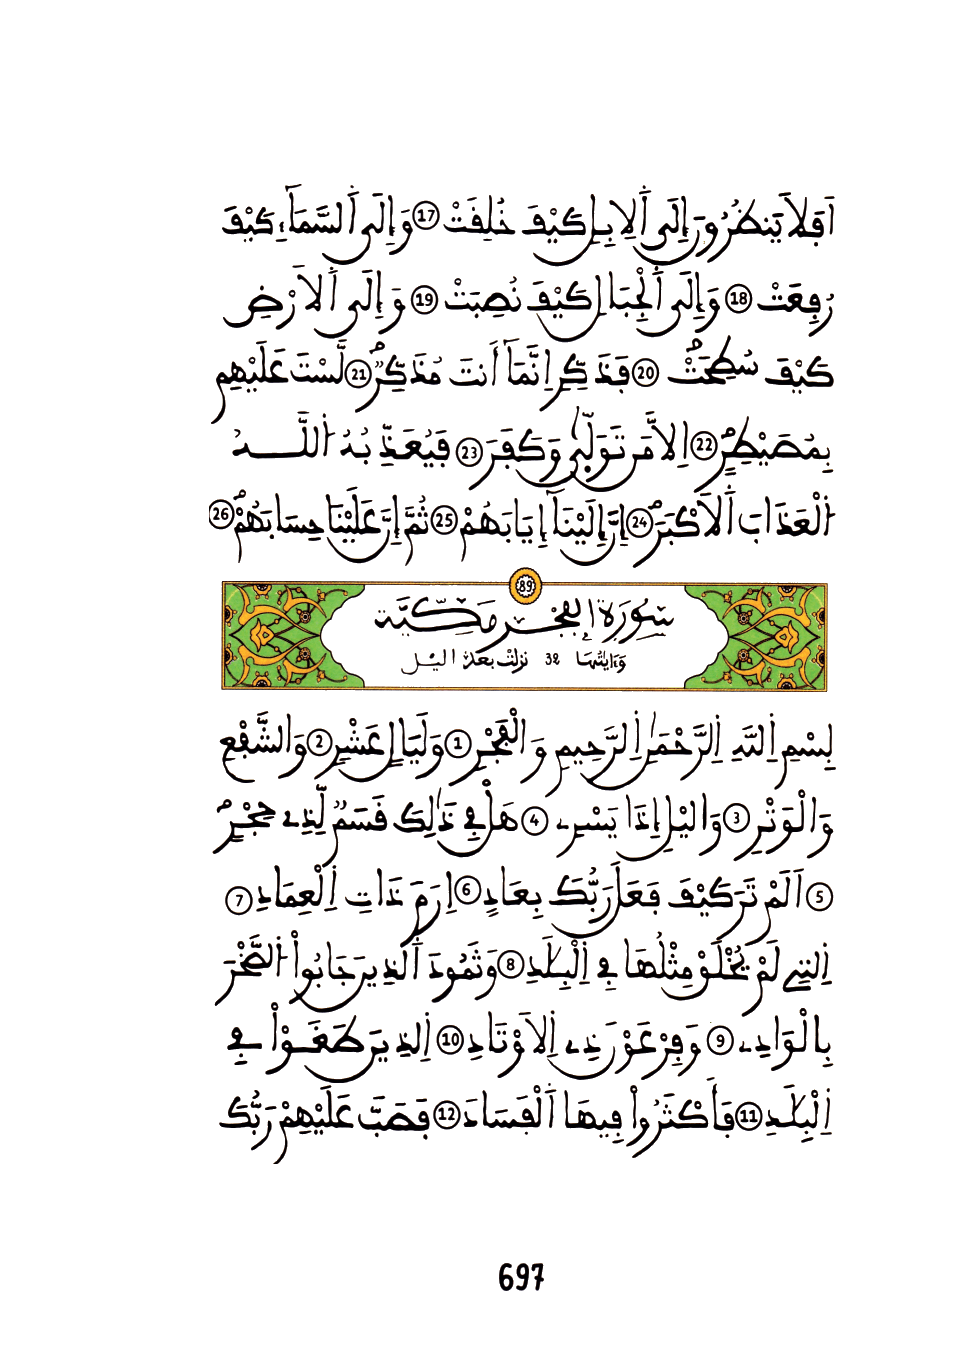 اَفَلَا يَنظُرُونَ إِلَى أَلِابِلِ كَيْفَ خُلِقَتْ 17 وَإِلَى أَلسَّمَآءِ كَيْفَ
رُفِعَتْ 18 وَإِلَى أَلْجِبَالِ كَيْفَ نُصِبَتْ 19 وَإِلَى أَلَارْضِ
كَيْفَ سُطِحَتْ 20 فَذَكِّرِ اِنَّمَآ أَنتَ مُذَكِّرٌ 21 لَّسْتَ عَلَيْهِم
بِمُصَيْطِرٍ 22 اِلَّا مَن تَوَلّ۪ىٰ وَكَفَرَ 23 فَيُعَذِّبُهُ اُللَّهُ
اُلْعَذَابَ أَلَاكْبَرَ 24 إِنَّ إِلَيْنَآ إِيَابَهُمْ 25 ثُمَّ إِنَّ عَلَيْنَا حِسَابَهُم 26
89
سُورَةُ الفَجْرِ مَكِّيَّة
وَءَايَٰتُهَا 32 نزلت بعد اليل
بِسْمِ اِللَّهِ اِلرَّحْمَٰنِ اِلرَّحِيمِ وَالْفَجْرِ 1 وَلَيَالٍ عَشْرٍ 2 وَالشَّفْعِ
وَالْوَتْرِ 3 وَاليْلِ إِذَا يَسْرِۦ 4 هَلْ فِي ذَٰلِكَ قَسَمٌ لِّذِے حِجْرٍ
5 اَلَمْ تَرَ كَيْفَ فَعَلَ رَبُّكَ بِعَادٍ 6 اِرَمَ ذَاتِ اِلْعِمَادِ 7
اِلتِے لَمْ يُخْلَقْ مِثْلُهَا فِي اِلْبِلَٰدِ 8 وَثَمُودَ أَلذِينَ جَابُواْ اُلصَّخْرَ
بِالْوَادِۦ 9 وَفِرْعَوْنَ ذِے اِلَاوْتَادِ 10 اِلذِينَ طَغَوْاْ فِي
اِلْبِلَٰدِ 11 فَأَكْثَرُواْ فِيهَا أَلْفَسَادَ 12 فَصَبَّ عَلَيْهِمْ رَبُّكَ
697